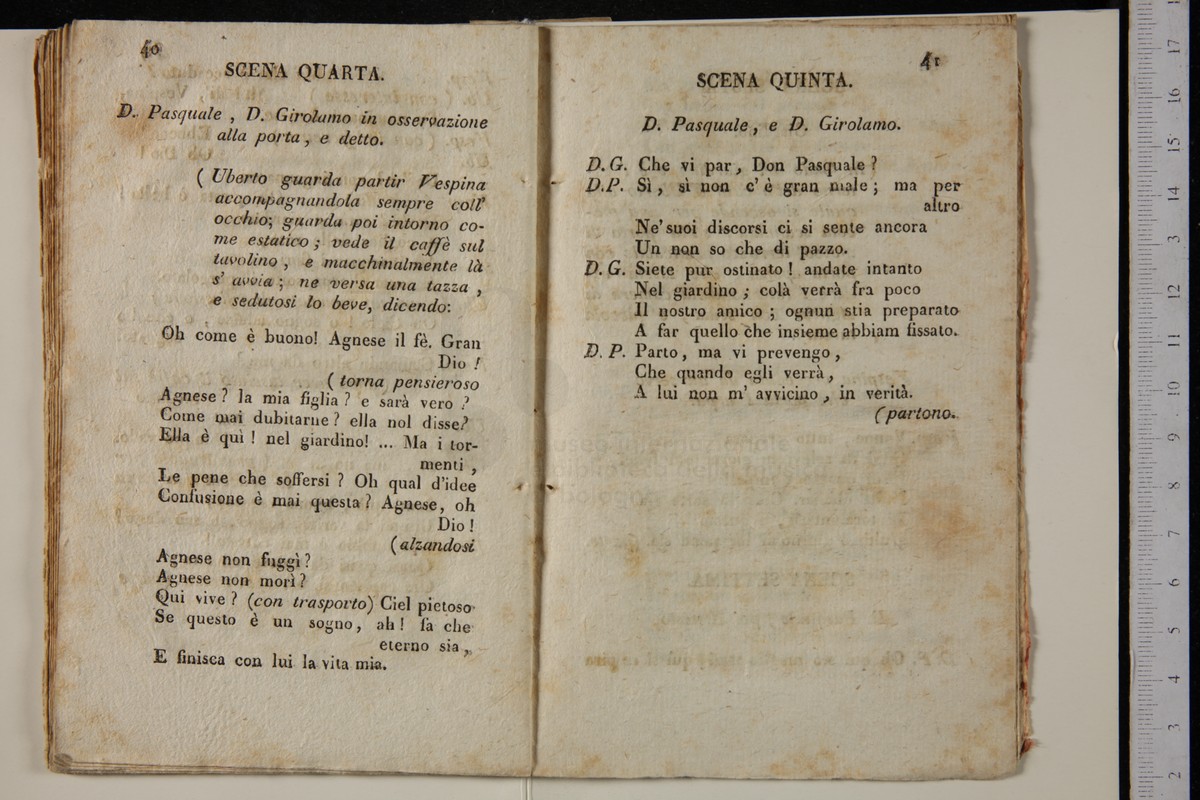 40
SCENA QUARTA.
D. Pasquale , D. Girolamo in osservazione
alla porta , e detto.
( Uberto guarda partir Vespina
accompagnandola sempre coll'
occhio; guarda poi intorno co-
me estatico ; vede il caffè sul
tavolino , e macchinalmente là
s' avvia ; ne versa una tazza ,
e sedutosi lo beve, dicendo:
Oh come è buono! Agnese il fè. Gran
Dio !
( torna pensieroso
Agnese ? la mia figlia ? e sarà vero ?
Come mai dubitarne ? ella nol disse?
Ella è quì ! nel giardino! ... Ma i tor-
menti ,
Le pene che soffersi ? Oh qual d'idee
Confusione è mai questa ? Agnese, oh
Dio !
( alzandosi
Agnese non fuggì ?
Agnese non morì ?
Qui vive ? (con trasporto) Ciel pietoso
Se questo è un sogno, ah ! fa che
eterno sia ,
E finisca con lui la vita mia.
41
SCENA QUINTA.
D. Pasquale , e D. Girolamo.
D. G. Che vi par , Don Pasquale ?
D.P. Sì , sì non c' è gran male ; ma per
altro
Ne' suoi discorsi ci si sente ancora
Un non so che di pazzo.
D. G. Siete pur ostinato ! andate intanto
Nel giardino ; colà verrà fra poco
Il nostro amico ; ognun stia preparato
A far quello che insieme abbiam fissato.
D. P. Parto , ma vi prevengo ,
Che quando egli verrà ,
A lui non m' avvicino , in verità.
( partono.
17
16
15
14
13
12
11
10
9
8
7
6
5
4
3
2